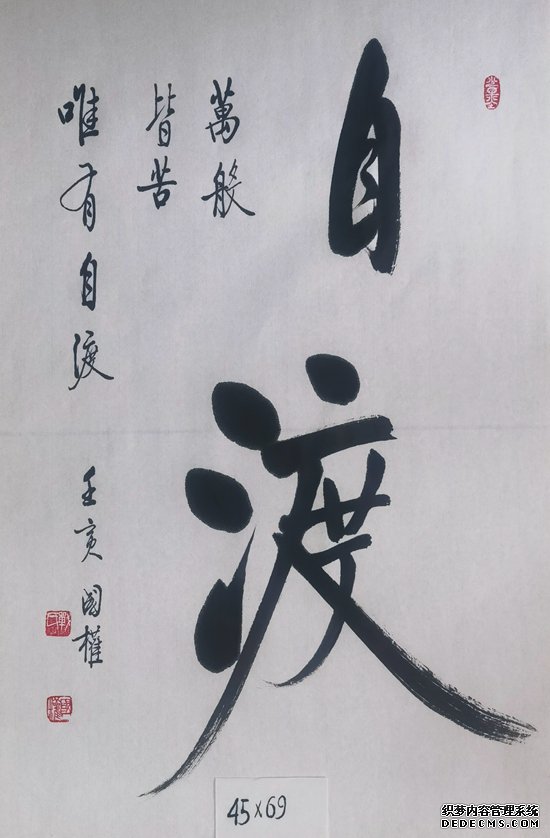 自渡
萬般
皆苦
唯有自渡
壬寅 國權
45x69
织梦内容管理系统
DEDECMS.COM